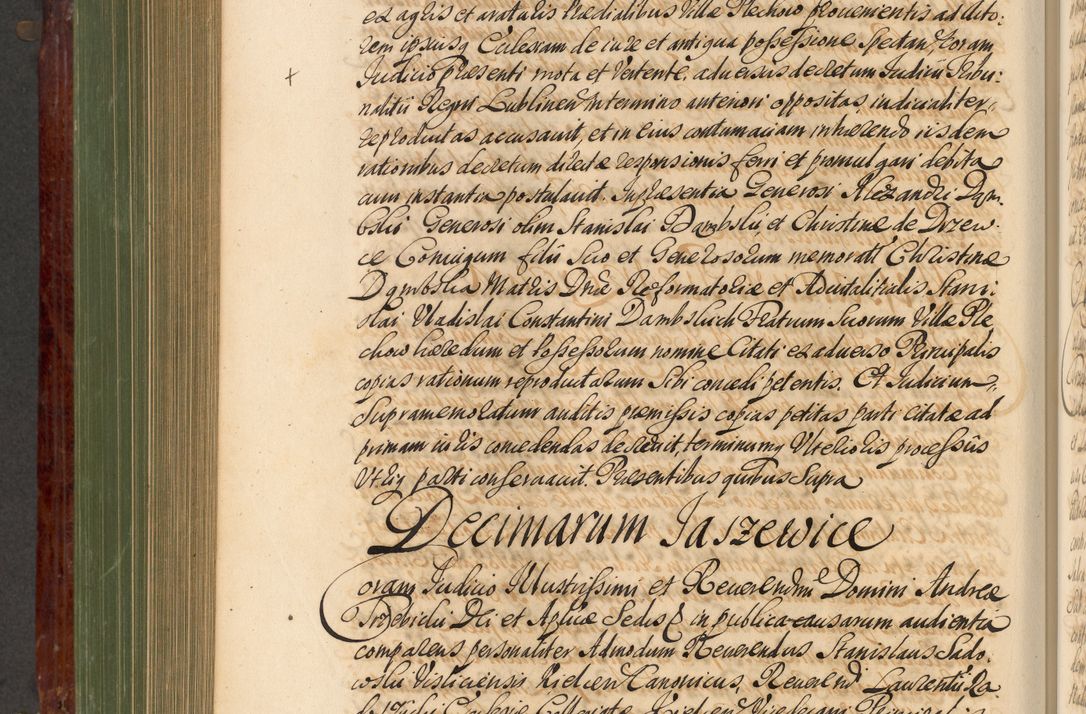 ex agris et aratalis Prædialibus Villæ Plechow prouenientis ad Acto:
rem ipsiusq Ecclesiam de iure et antiqua possessione Spectan Coram
+ Judicio præsenti mota et Vertente aduersus decretum Iudicii Tribu
nalitii Regni Lublinen in termino anteriori oppositas, iudicialiter
reproductas accusauit, et in Eius contumaciam inhærendo iisdem
rationibus decretum directæ responsionis ferri et promulgari debita
cum instantia postulauit. In præsentia Generosi Alexandri Dąm
bski Generosi olim Stanislai Dąmbski et Christinæ de Drzew
ce Coniugum filii Suo et Generosorum memoratæ Christinæ
Dąmbska Matris Dnæ Reformatoriæ et Aduitalitialis Stani
slai Vladislai Constantini Dambskich Fratrum Suorum Villæ Ple
chow hæredum et Possessorum nomine Citati ex aduerso Principalis
copias rationum reproductarum Sibi concedi petentis. Et Iudicium
Supramemoratum auditis præmissis copias petitas parti citatæ ad
primam iuris concedendas decreuit, terminumq Vlterioris processus
Vtriq parti conseruauit. Præsentibus quibus Supra
Decimarum Jaszewice
Coram Judicio Illustrissimi et Reuerendmi Domini Andreæ
Trzebicki Dei et Aplicæ Sedis in publica causarum audientia
comparens personaliter Admodum Reuerendus Stanislaus Sado
woski Visliciensis Kielcen Canonicus, Reuerendi Laurentii